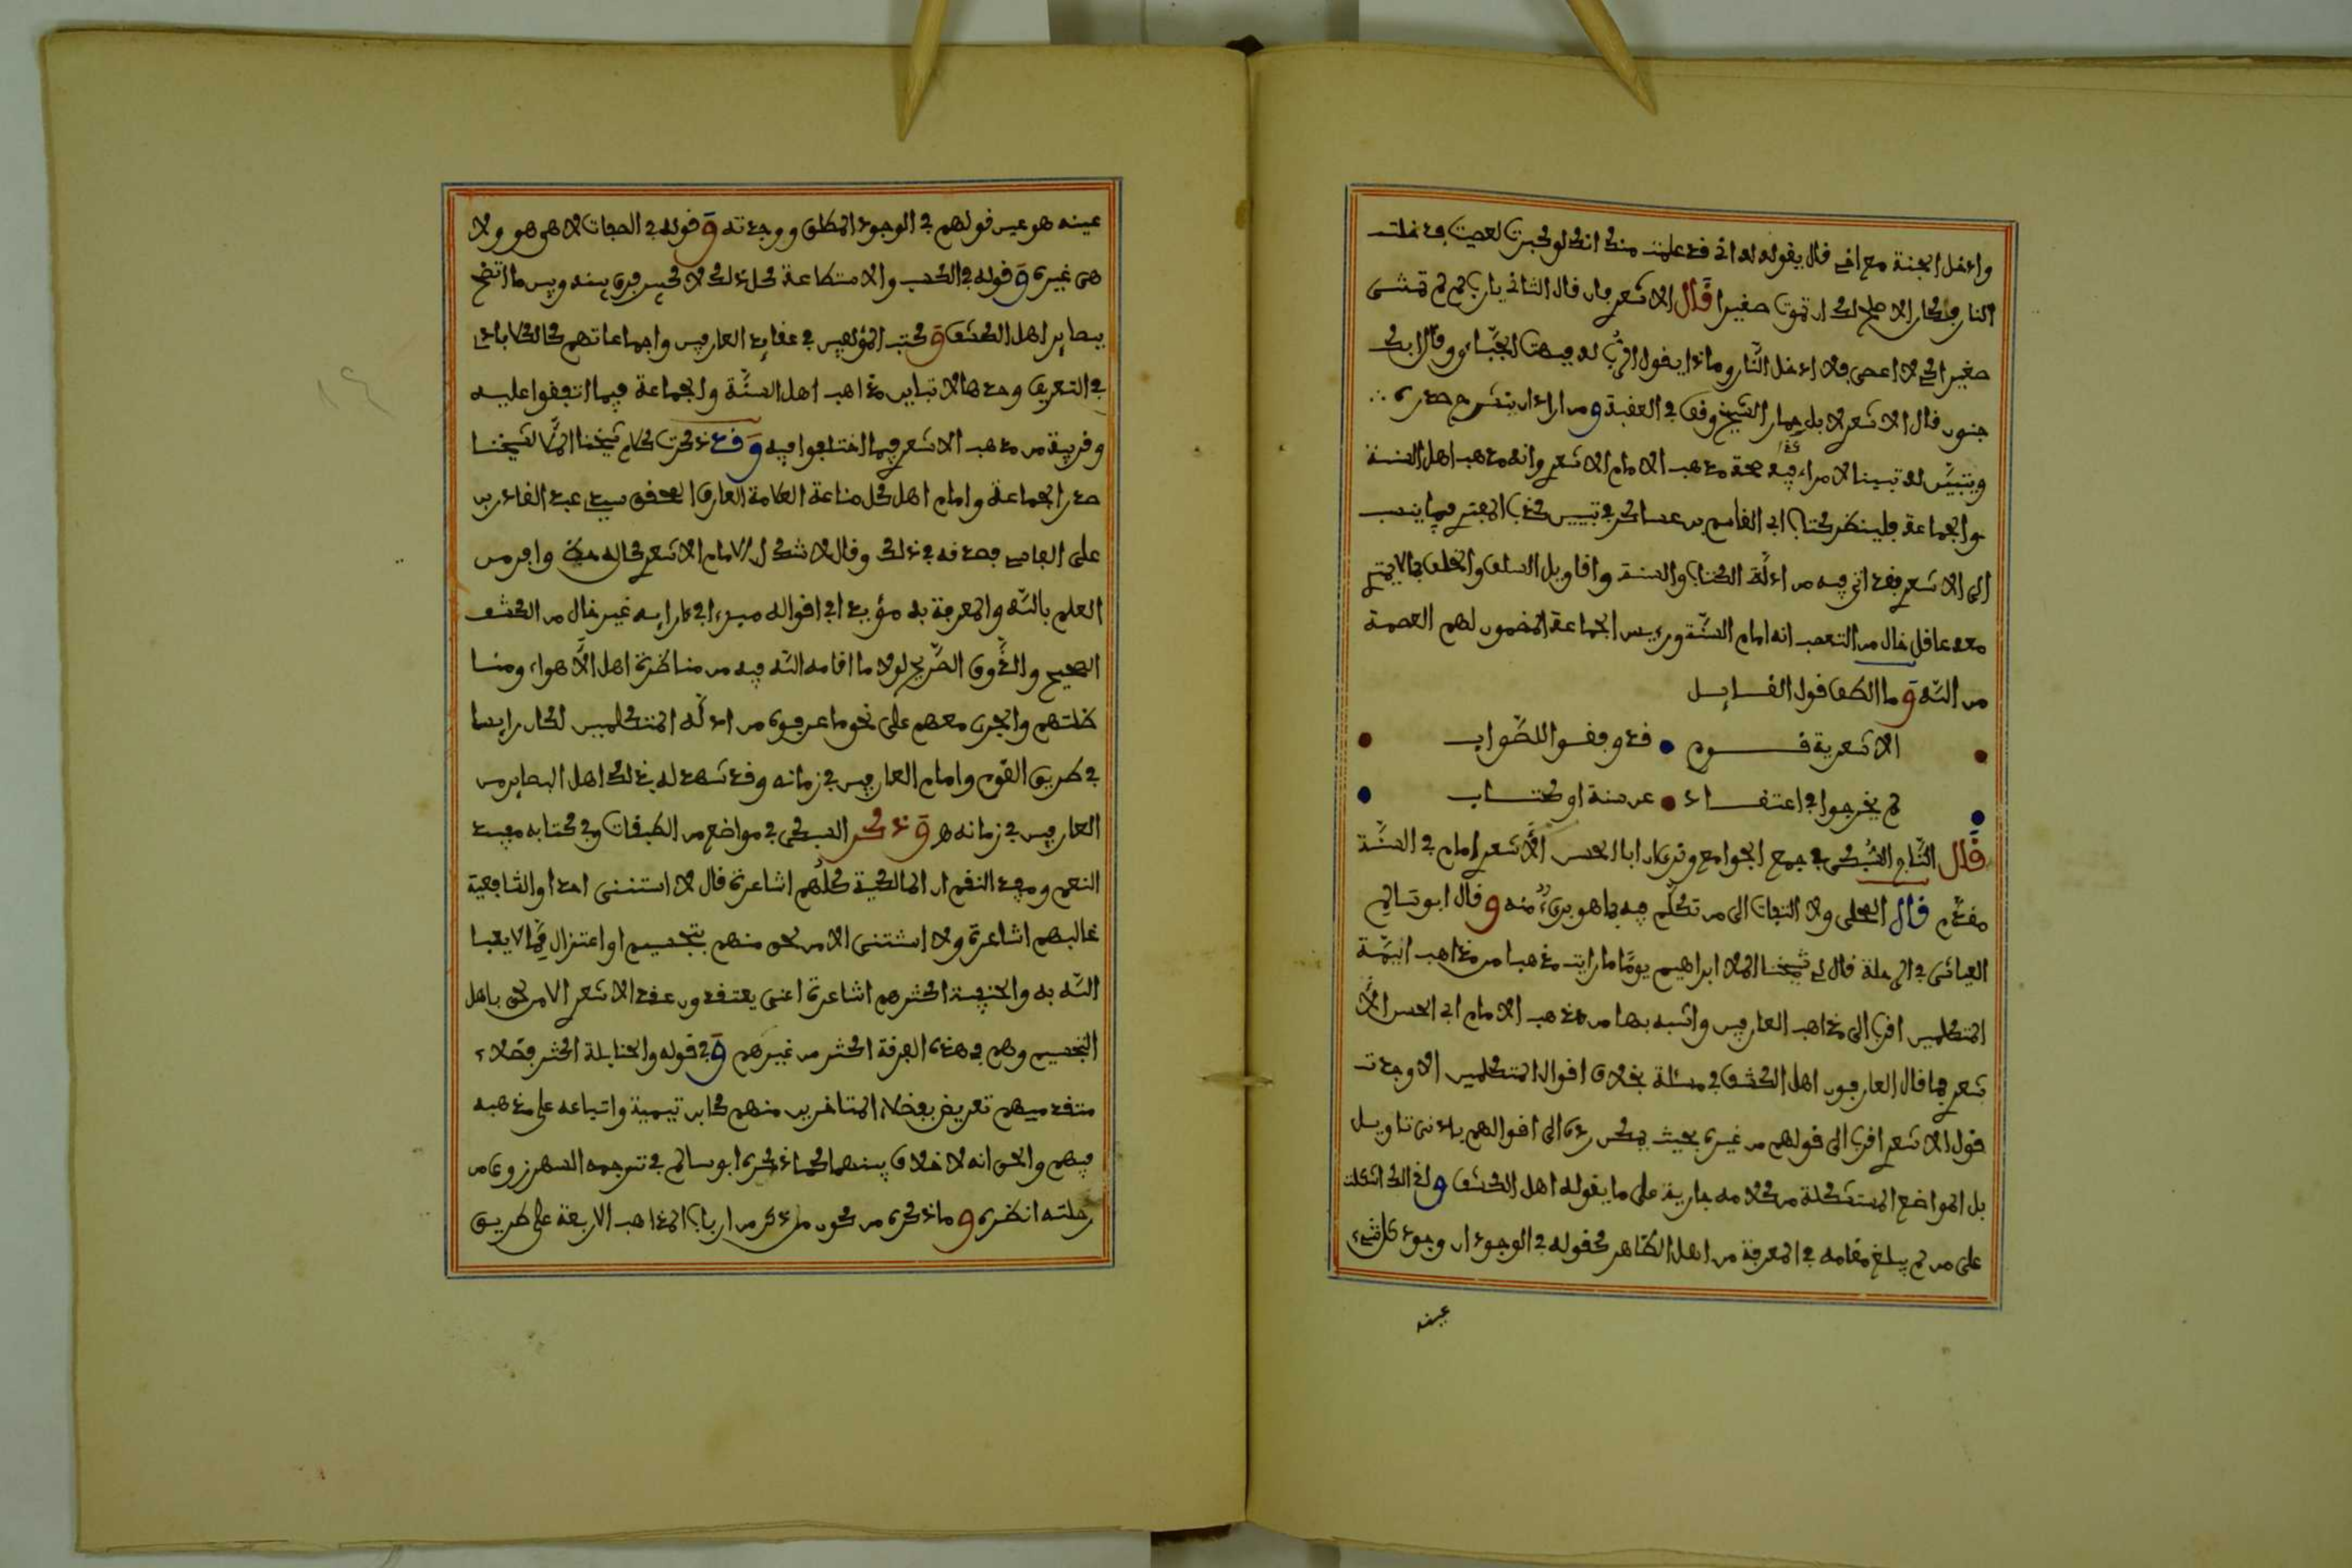 وادخل الجنة مع اخي قال يقول له اني قد علمت منك انك لو كبرت لعصيت فدخلت
النار فكان الاصلح لك ان تموت صغيرا قال الاشعري فان قال الثاني يا رب لم لم تمتني
صغيرا لئلا اعصي فلا ادخل النار وماذا يقول الرب له فبهت الجبائي وقال ابك
جنون قال الاشعري لا بل حمار الشيخ وقف في العقبة ومن اراد ان ينشرح صدره
ويتبين له تبينا لا مراء فيه صحة مذهب الامام الاشعري وانه مذهب اهل السنة
والجماعة فلينظر كتاب ابي القاسم بن عساكر في تبيين كذب المفتري فيما ينسب
الى الاشعري فقد اتى فيه من ادلة الكتاب والسنة واقاويل السلف والخلف بما لا يمتري
معه عاقل خال من التعصب انه امام السنة ورئيس الجماعة المضمون لهم العصمة
من الله وما الطف قول القايل
الاشعرية قوم • قد وفقوا للصواب
لم يخرجوا في اعتقاد • عن سنة او كتاب
قال التاج السبكي في جمع الجوامع ونرى ان ابا الحسن الاشعري امام في السنة
مقدم قال المحلي ولا التفات الى من تكلم فيه بما هو بريء منه وقال ابو سالم
العياشي في الرحلة قال لي شيخنا الملا ابراهيم يوما ما رايت مذهبا من مذاهب ايمة
المتكلمين اقرب الى مذاهب العارفين واشبه بها من مذهب الامام ابي الحسن الا
شعري فما قال العارفون اهل الكشف في مسئلة بخلاف اقوال المتكلمين الا وجدت
قول الاشعري اقرب الى قولهم من غيره بحيث يمكن رده الى اقوالهم بادنى تاويل
بل المواضع المستشكلة من كلامه جارية على ما يقوله اهل الكشف ولذالك اشكلت
على من لم يبلغ مقامه في المعرفة من اهل الظاهر كقوله في الوجود ان وجود كل شيء
عينه
عينه هو عين قولهم في الوجود المطلق ووحدته وقوله في الصفات لا هي هو ولا
هي غيره وقوله في الكسب والاستطاعة كل ذلك لا كبير فرق بينه وبين ما اتضح
ببصاير اهل الكشف وكتب المؤلفين في عقايد العارفين واجماعاتهم كالكلاباذي
في التعرف وحدها لا تباين مذاهب اهل السنة والجماعة فيما اتفقوا عليه
وقريبة من مذهب الاشعري فيما اختلفوا فيه وقد ذكرت كلام شيخنا الملا لشيخنا
صدر الجماعة وامام اهل كل صناعة العلامة العارف المحقق سيدي عبد القادر بن
علي الفاسي فصدقه في ذلك وقال لا شك ان الامام الاشعري كان له حظ وافر من
العلم بالله والمعرفة به مؤيدا في اقواله مسددا في ارايه غير خال من الكشف
الصحيح والذوق الصريح لولا ما اقامه الله فيه من مناظرة اهل الاهواء ومنا
ضلتهم والجري معهم على نحو ما عرفوه من ادلة المتكلمين لكان رايسا
في طريق القوم وامام العارفين في زمانه وقد شهد له بذلك اهل البصاير من
العارفين في زمانه هـ وذكر السبكي في مواضع من الطبقات وفي كتابه معيد
النعم ومبيد النقم ان المالكية كلهم اشاعرة قال لا استثني احدا والشافعية
غالبهم اشاعرة ولا استثني الا من لحق منهم بتجسيم او اعتزال ممن لا يعبا
الله به والحنفية اكثرهم اشاعرة اعني يعتقدون عقد الاشعري الا من لحق باهل
التجسيم وهم في هذه الفرقة اكثر من غيرهم وفي قوله والحنابلة اكثر فضلاء
متقدميهم تعريض بفضلاء المتاخرين منهم كابن تيمية واتباعه على مذهبه
فيهم والحق انه لا خلاف بينهما كما ذكره ابو سالم في ترجمة السهرزوري من
رحلته انظره وما ذكره من كون من ذكر من ارباب المذاهب الاربعة على طريق